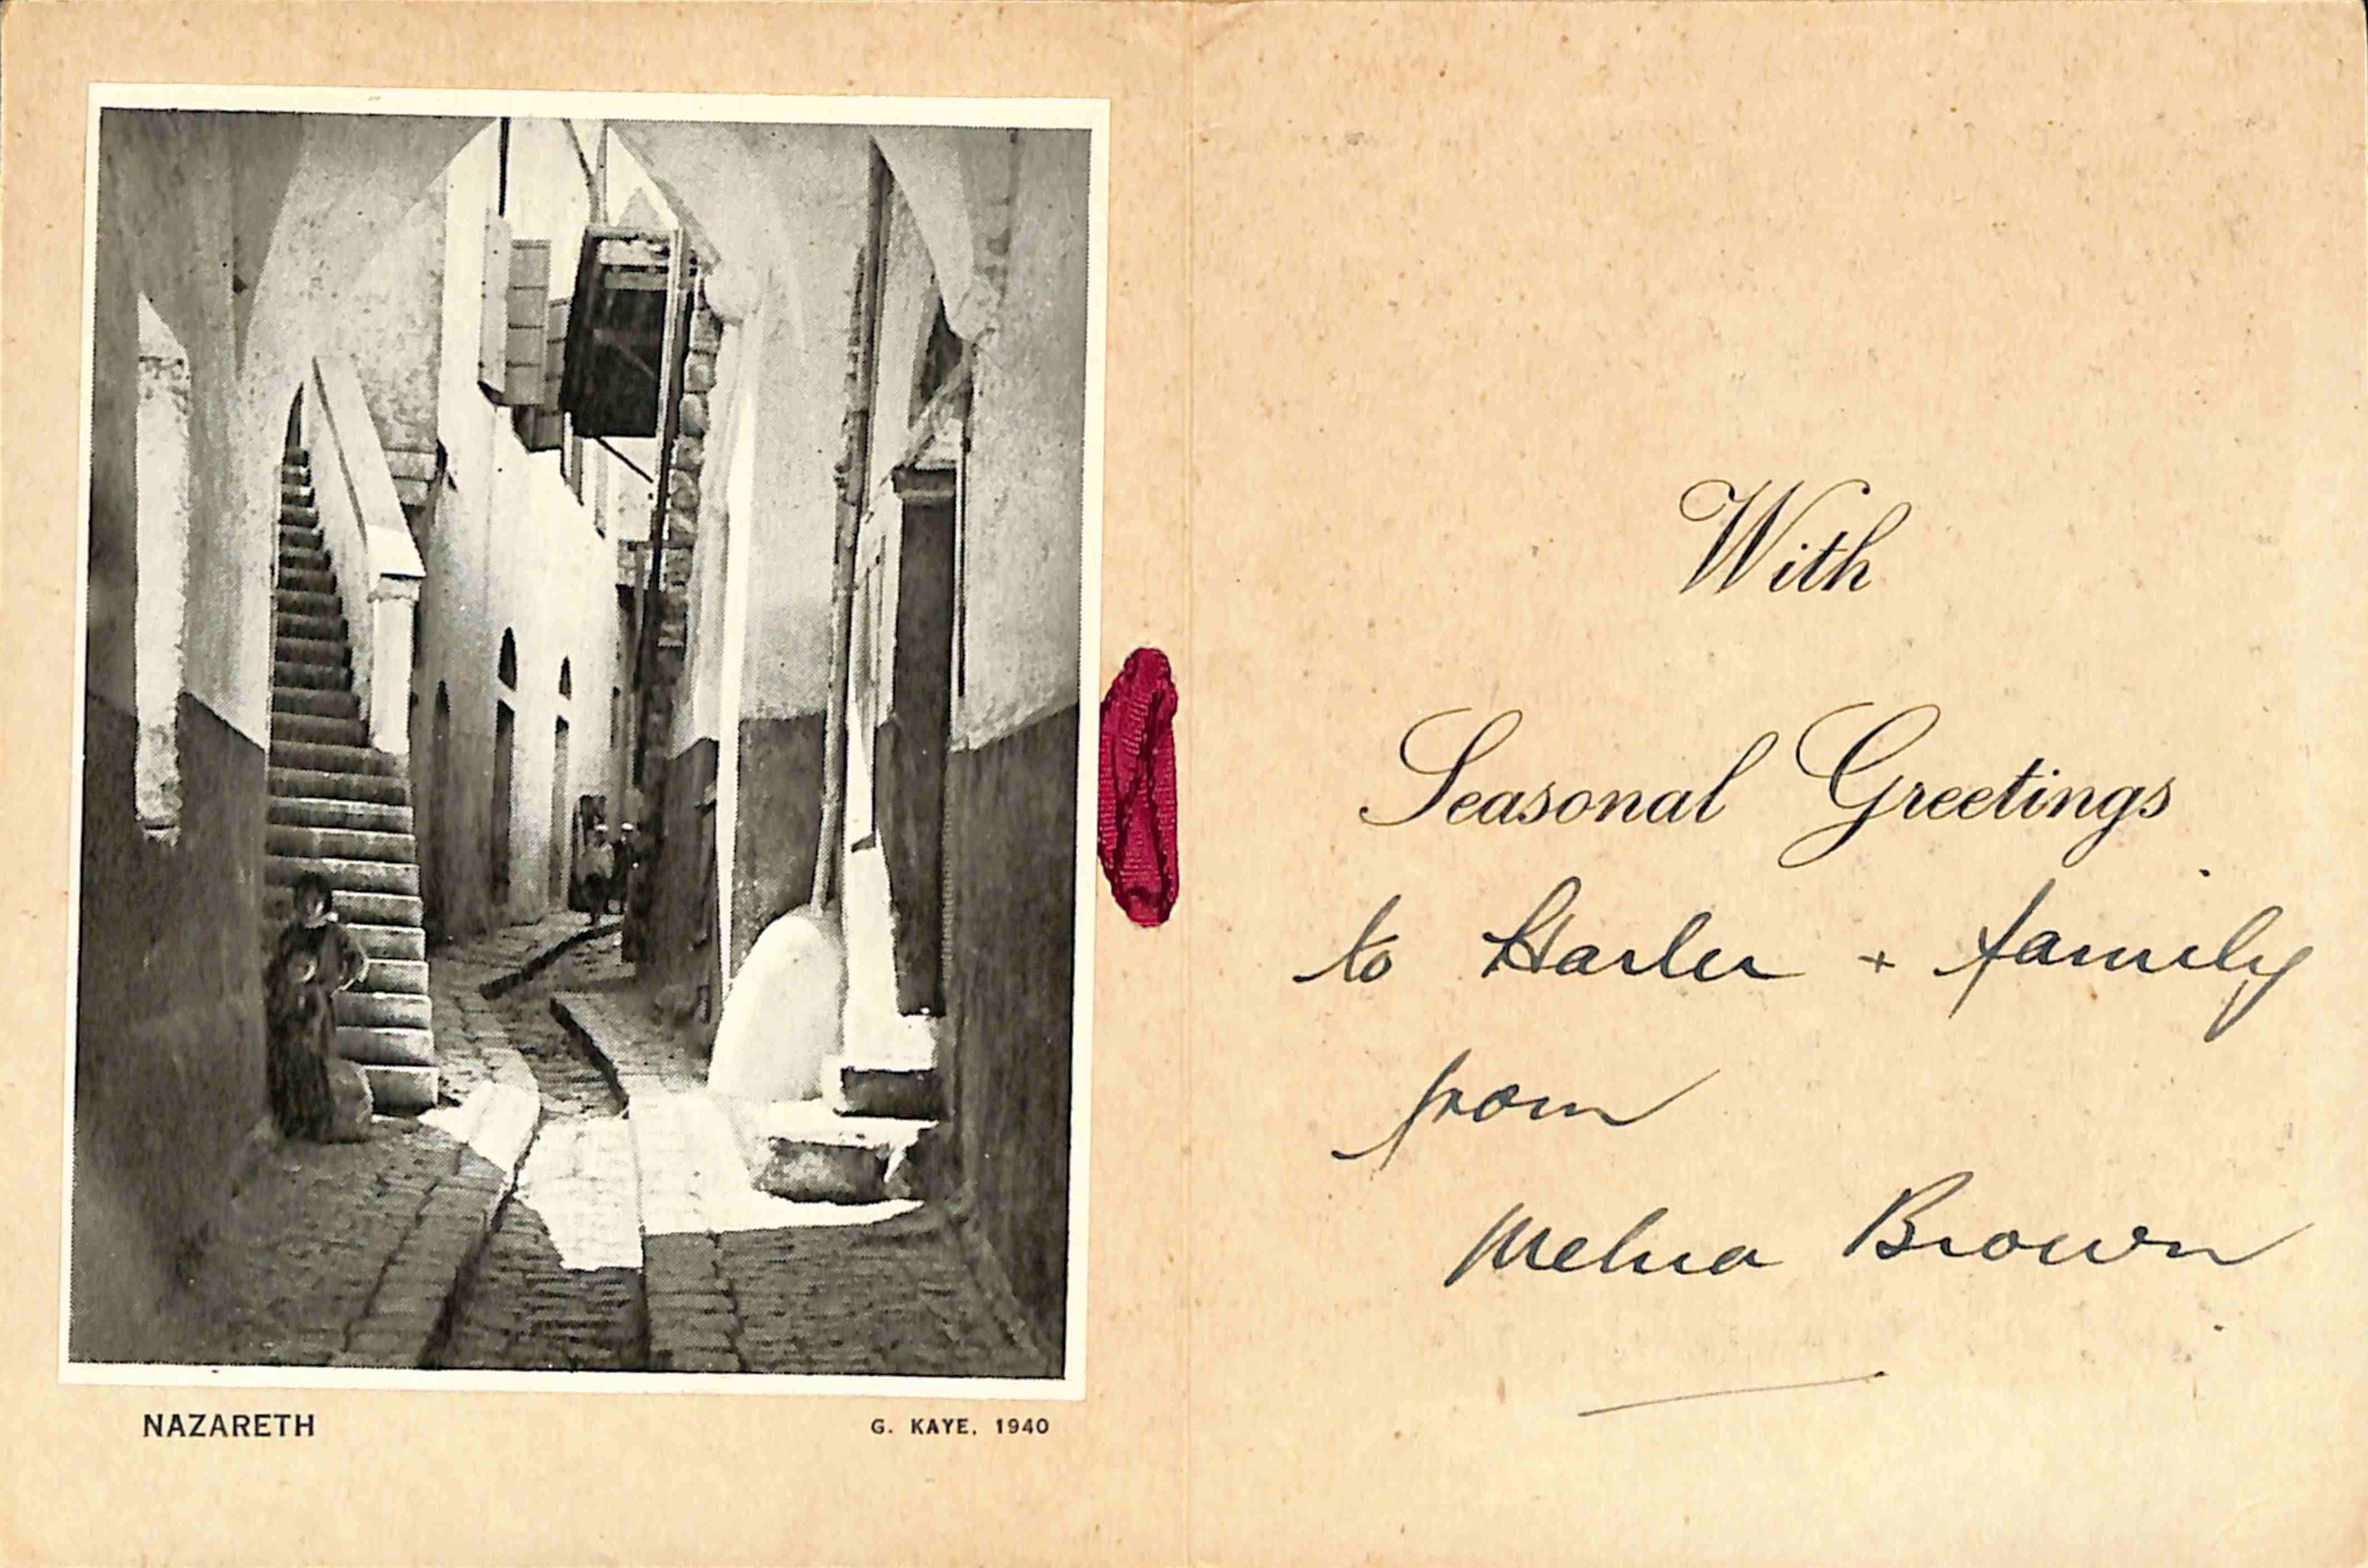 NAZARETH
G. KAYE, 1940
With
Seasonal Greetings
to + family
from
Brown